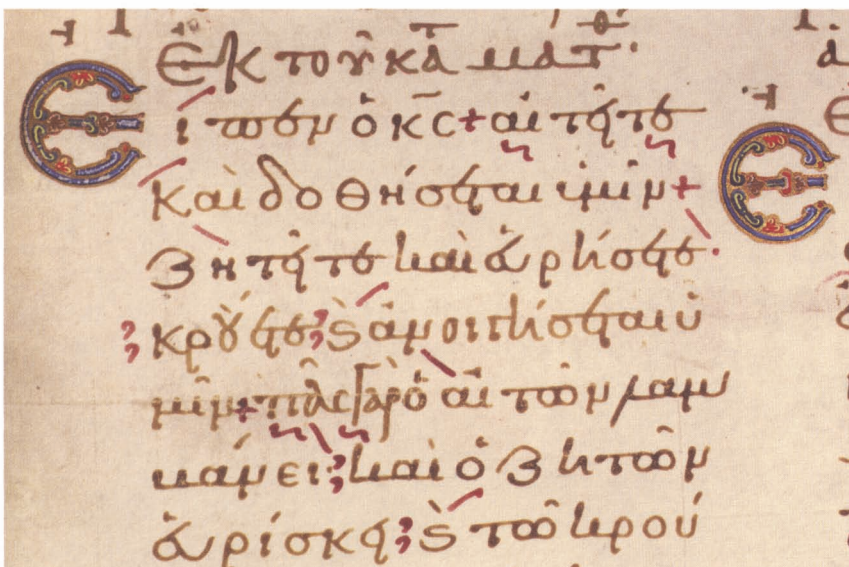 Ἐκ τοῦ κα̅τ ματθ·
Εἶπεν ὁ κ̅ς + αἰτεῖτε
καὶ δοθήσεται ὑμῖν +
ζητεῖτε καὶ εὑρήσετε.
κρούετε ϗ ἀνοιγήσεται ὑ
μῖν + πᾶς γὰρ ὁ αἰτῶν λαμ
βάνει καὶ ὁ ζητῶν
εὑρίσκει ϗ τῶ κρού